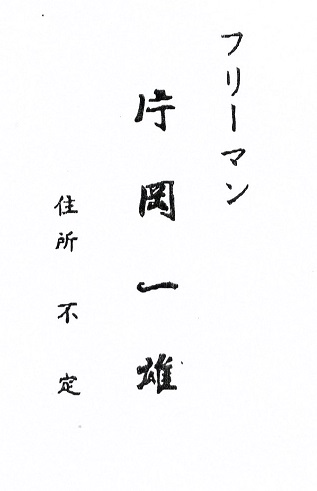 フリーマン
片岡一雄
住所 不定